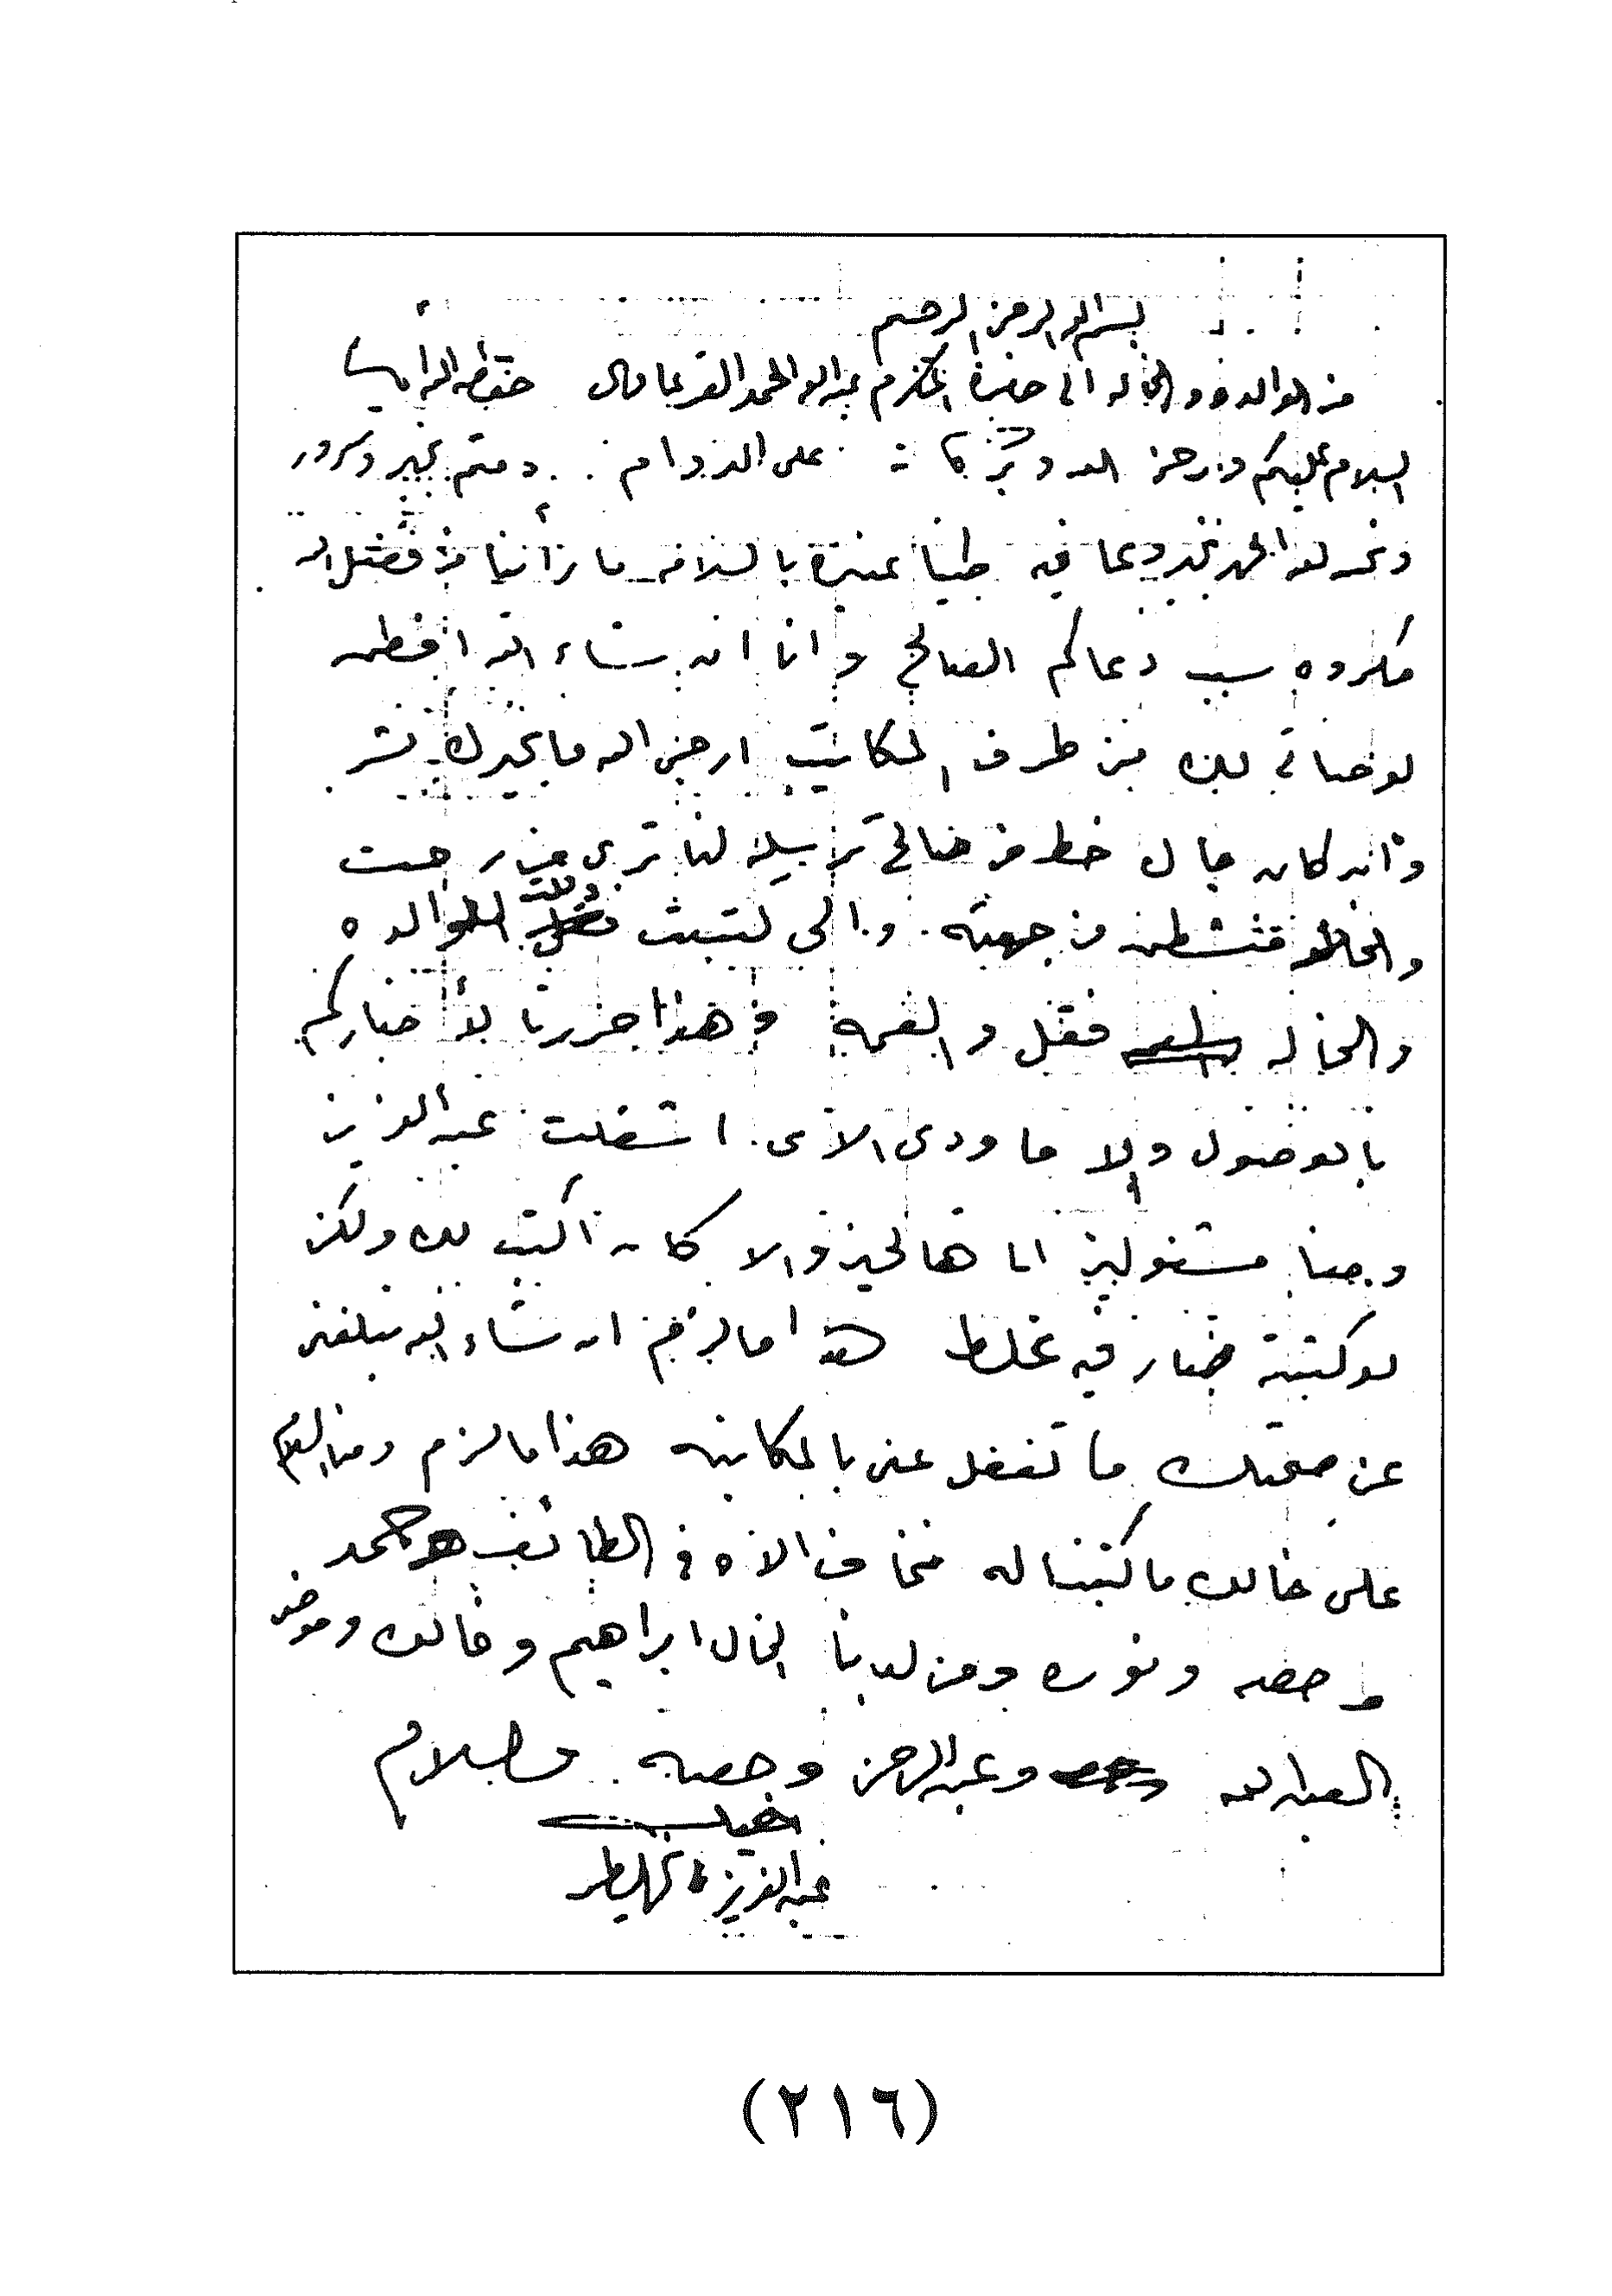 بسم الله الرحمن الرحيم
من الوالده والخاله الى حضرة المكرم عبدالله المحمد القرعاوي حفظه الله امين
السلام عليكم ورحمة الله وبركاته على الدوام دمتم بخير وسرور
ونحن لله الحمد بخير وعافيه طيبا عنيزة بالسلامه ما رأينا من فضل الله
مكروه سبب دعاكم الصالح وانا ان شاء الله
لوصاتي لك من طرف المكاتيب ارجى الله ما يخيرك بشر
وان كان جاك خط من خالي ترسله لنا ترى
والخاله من جهته والى كتبت الوالده
والخاله فقل والعمه وهذا حررنا لأخباركم
بالوصول والا ما ودي الاتى اشغلت عبدالعزيز
وحنا مشغولين انا هالحين والا كان أكتب لك ولكن
لو كتبته صار فيه غلط هذا ما لزم ان شاء الله تبلغني
عن صحتك ما تغفل عني بالمكاتبه هذا ما لزم ومنا السلام
على خالك ما كتبنا له نخاف الانه في الطائف ومحمد
وحصه ونوره ومن لدينا الخال ابراهيم وخالك وموضي
العبدالله وعبدالرحمن وحصه والسلام
اخيك
عبدالعزيز
(٢١٦)